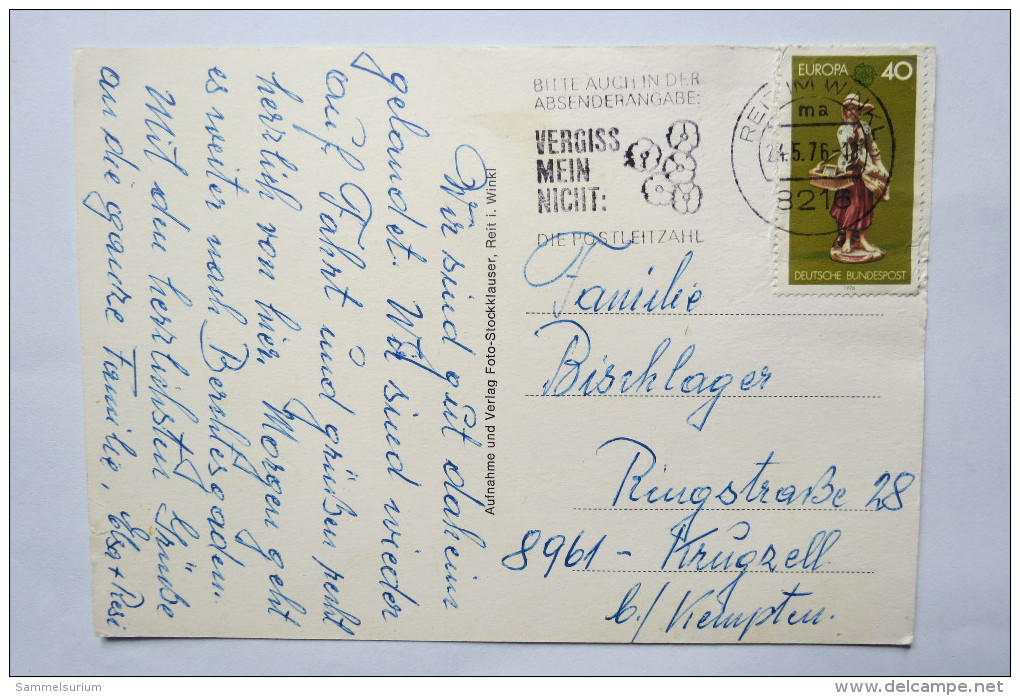 Wir sind gut daheim
gelandet. Wir sind wieder
auf Fahrt und grüßen recht
herzlich von hier. Morgen geht
es weiter nach Berchtesgaden.
Mit den herzlichsten Grüße
an die ganze Familie,
Elsa + Resi
Aufnahme und Verlag Foto-Stockklauser, Reit i. Winkl
BITTE AUCH IN DER
ABSENDERANGABE:
VERGISS
MEIN
NICHT:
DIE POSTLEITZAHL
REIT IM WINKL
ma
24.5.76
8216
EUROPA 40
DEUTSCHE BUNDESPOST
1976
Familie
Bischlager
Ringstraße 28
8961 - Krugzell
b/ Kempten.
Sammelsurium
www.delcampe.net